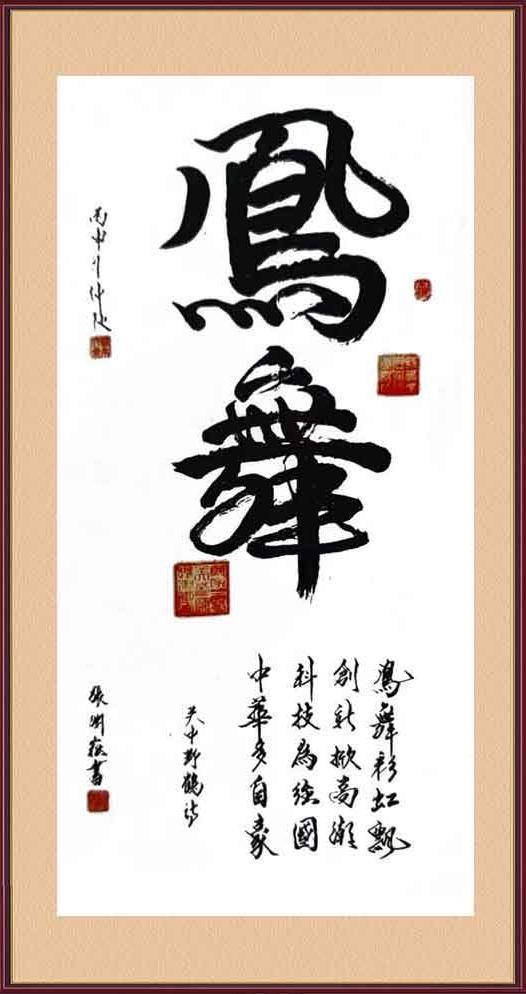 鳳舞
鳳舞彩虹飄
創新掀高潮
科技為強國
中華多自豪
天中野鶴詩
丙申年仲秋
張 書